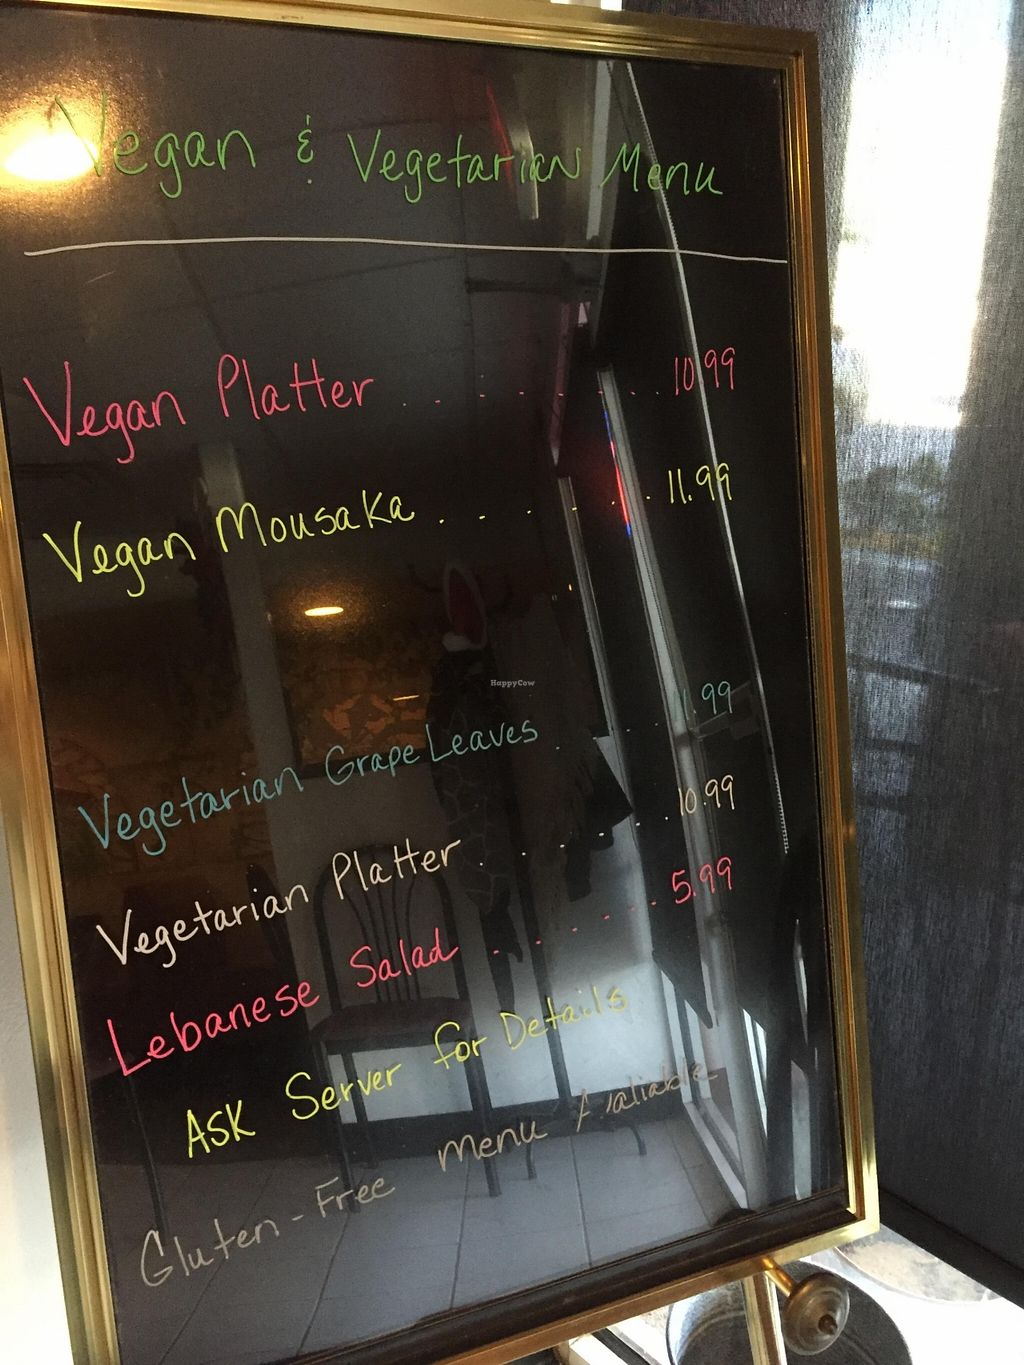 Vegan & Vegetarian Menu
Vegan Platter . . . . . . . . 10.99
Vegan Mousaka . . . . . . 11.99
HappyCow
Vegetarian Grape Leaves . . .99
Vegetarian Platter . . . . . . 10.99
Lebanese Salad . . . . . . 5.99
Ask Server for Details
Gluten-Free menu Avaliable